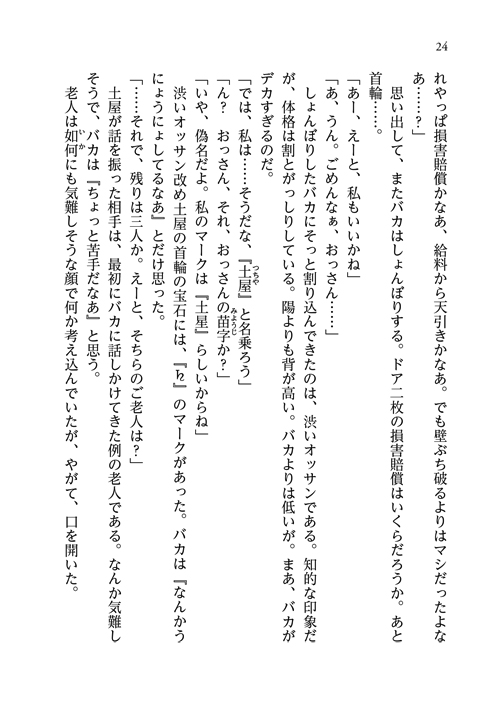 24
れやっぱ損害賠償かなあ、給料から天引きかなあ。でも壁ぶち破るよりはマシだったよな
あ……？」
　思い出して、またバカはしょんぼりする。ドア二枚の損害賠償はいくらだろうか。あと
首輪……。
「あー、えーと、私もいいかね」
「あ、うん。ごめんなぁ、おっさん……」
　しょんぼりしたバカにそっと割り込んできたのは、渋いオッサンである。知的な印象だ
が、体格は割とがっしりしている。陽よりも背が高い。バカよりは低いが。まあ、バカが
デカすぎるのだ。
「では、私は……そうだな、『土屋』と名乗ろう」
つちや
「ん？　おっさん、それ、おっさんの苗字か？」
みょうじ
「いや、偽名だよ。私のマークは『土星』らしいからね」
　渋いオッサン改め土屋の首輪の宝石には、『♄』のマークがあった。バカは『なんかう
にょうにょしてるなあ』とだけ思った。
「……それで、残りは三人か。えーと、そちらのご老人は？」
　土屋が話を振った相手は、最初にバカに話しかけてきた例の老人である。なんか気難し
そうで、バカは『ちょっと苦手だなあ』と思う。
　老人は如何にも気難しそうな顔で何か考え込んでいたが、やがて、口を開いた。
いか